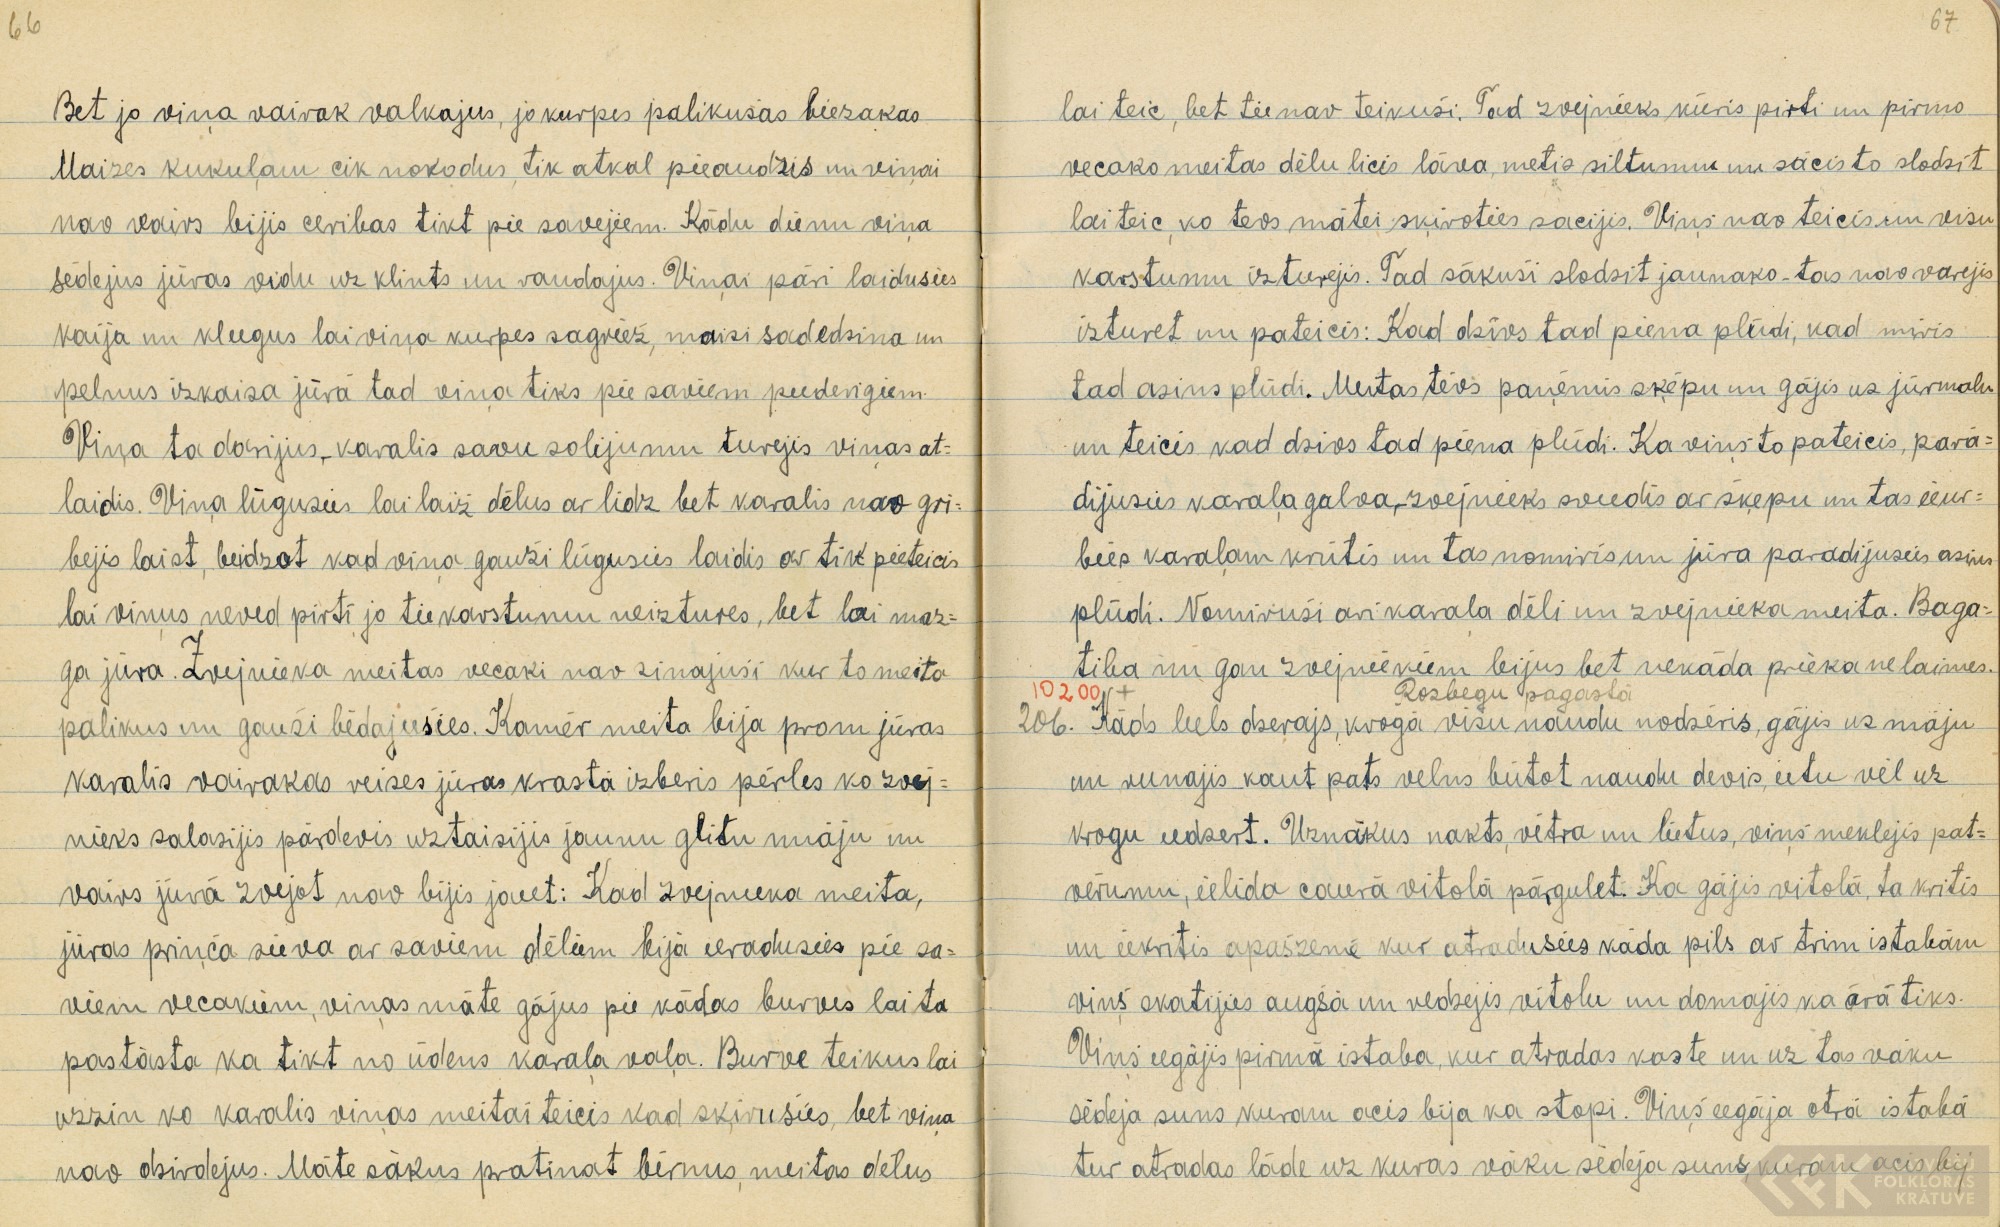 66
Bet jo viņa vairak valkajus, jo kurpes palikušas biezakas
Maizes kukuļam cik nokodus, tik atkal pieaudzis un viņai
nav vairs bijis ceribas tikt pie savejiem. Kādu dienu viņa
sēdejus jūras vidu uz klints un raudajus. Viņai pāri laidusies
kaija un kleegus lai viņa kurpes sagriež, maizi sadedzina un
pelnus izkaisa jūrā tad viņa tiks pie saviem peederigiem.
Viņa ta darijus, karalis savu solijumu turejis viņas at=
laidis. Viņa lūgusies lai laiž dēlus ar lidz bet karalis nav gri=
bejis laist, beidzot kad viņa gauži lūgusies laidis ar tik pieteicis
lai viņus neved pirtī jo tie karstumu neiztures, bet lai maz=
ga jūra. Zvejnieka meitas vecaki nav zinajuši kur to meita
palikus un gauži bēdajušies. Kamēr meita bija prom jūras
karalis vairakas reizes jūras krastā izberis pērles ko zvej=
nieks salasijis pārdevis uztaisijis jaunu glitu māju un
vairs jūrā zvejot nav bijis jaeet: Kad zvejneeka meita,
jūras prinča sieva ar saviem dēliem bija eeradusies pie sa=
viem vecakiem, viņas māte gājus pie kādas burves lai ta
pastāsta ka tikt no ūdens karaļa vaļa. Burve teikus lai
uzzin ko karalis viņas meitai teicis kad šķirušies, bet viņa
nav dzirdejus. Māte sākus pratinat bērnus, meitas delus
67
lai teic, bet tie nav teikuši. Tad zvejnieks kūris pirti un pirmo
vecako meitas dēlu licis lāva, metis siltumu un sācis to slodzit
lai teic, ko tevs mātei šķiroties sacijis. Viņš nav teicis un visu
karstumu izturejis. Tad sākuši slodzit jaunako - tas nav varejis
izturet un pateicis: Kad dzīvs tad piena plūdi, kad miris
tad asins plūdi. Meitas tēvs paņēmis šķēpu un gājis uz jūrmalu
un teicis kad dzivs tad piena plūdi. Ka viņš to pateicis, parā=
dijusies karaļa galva, zvejnieks sviedis ar šķepu un tas ieur=
bies karaļam krūtis un tas nomiris un jūra paradijusies asins
plūdi. Nomiruši ari karaļa dēli un zvejnieka meita. Baga=
tiba nu gan zvejniekiem bijus bet nekāda prieka ne laimes.
10200 +
Rozbegu pagastā
206. Kāds liels dzerajs, krogā visu naudu nodzēris, gājis uz māju
un runajis kaut pats velns būtot naudu devis, ietu vēl uz
krogu eedzert. Uznākus nakts, vētra un lietus, viņš meklejis pat=
vērumu, ielida caurā vitolā pārgulet. Ka gājis vitolā, ta kritis
un iekritis apašzemē kur atradusies kāda pils ar trim istabām
viņš skatijies augšā un redzejis vitolu un domajis ka ārā tiks.
Viņš eegājis pirmā istaba, kur atradas kaste un uz tas vāku
sēdeja suns kuram acis bija ka stopi. Viņš eegāja otrā istabā
tur atradas lāde uz kuras vāku sēdeja suns, kuram acis bij
LFK
FOLKLORAS
KRĀTUVE